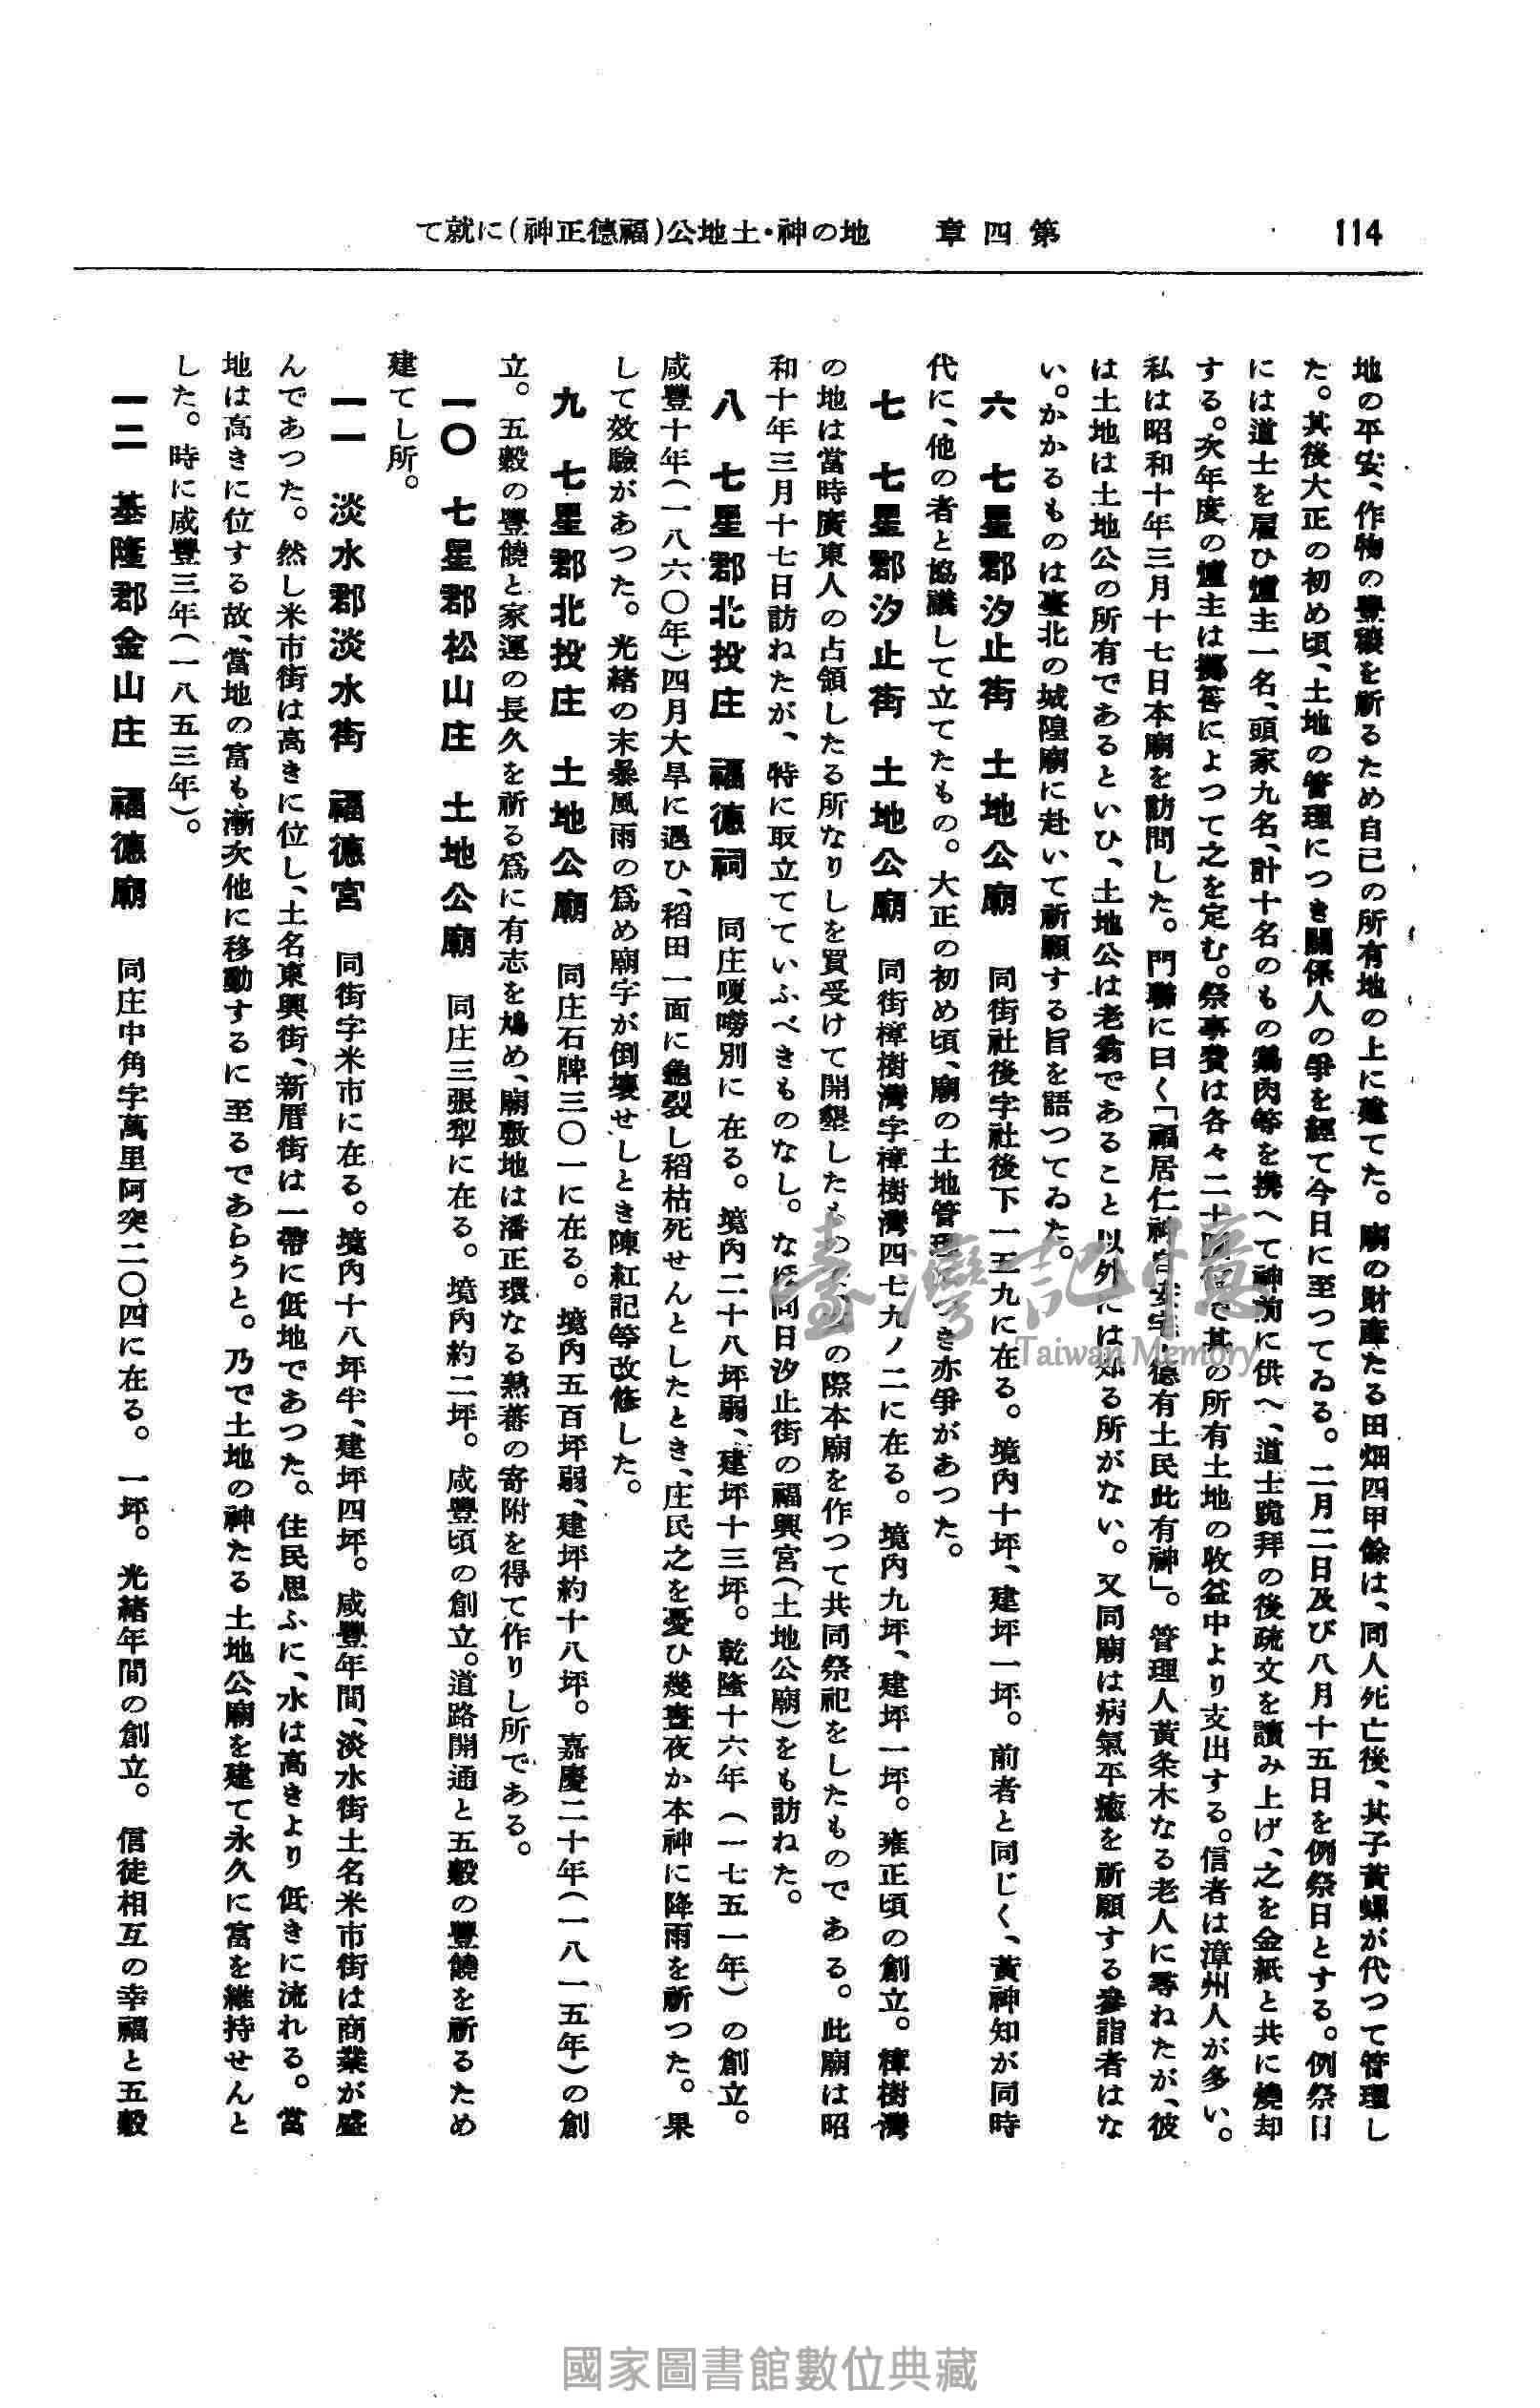 114
第四章　地の神・土地公(福德正神)に就て
地の平安、作物の豐穣を祈るため自己の所有地の上に建てた。廟の財產たる田畑四甲餘は、同人死亡後、其子黃螺が代つて管理し
た。其後大正の初め頃、土地の管理につき關係人の爭を經て今日に至つてゐる。二月二日及び八月十五日を例祭日とする。例祭日
には道士を雇ひ爐主一名、頭家九名、計十名のもの鷄肉等を携へて神前に供へ、道士跪拜の後疏文を讀み上げ、之を金紙と共に燒却
する。次年度の爐主は擲筶によつて之を定む。祭事費は各々二十圓位で其の所有土地の收益中より支出する。信者は漳州人が多い。
私は昭和十年三月十七日本廟を訪問した。門聯に曰く「福居仁神自安宅、德有土民此有神」。管理人黃条木なる老人に尋ねたが、彼
は土地は土地公の所有であるといひ、土地公は老翁であること以外には知る所がない。又同廟は病氣平癒を祈願する參詣者はな
い。かかるものは臺北の城隍廟に赴いて祈願する旨を語つてゐた。
六　七星郡汐止街　土地公廟　同街社後字社後下一五九に在る。境內十坪、建坪一坪。前者と同じく、黃神知が同時
代に、他の者と協議して立てたもの。大正の初め頃、廟の土地管理につき亦爭があつた。
七　七星郡汐止街　土地公廟　同街樟樹灣字樟樹灣四七九ノ二に在る。境內九坪、建坪一坪。雍正頃の創立。樟樹灣
の地は當時廣東人の占領したる所なりしを買受けて開墾したもので、その際本廟を作つて共同祭祀をしたものである。此廟は昭
和十年三月十七日訪ねたが、特に取立てていふべきものなし。なほ同日汐止街の福興宮(土地公廟)をも訪ねた。
八　七星郡北投庄　福德祠　同庄嗄嘮別に在る。境內二十八坪弱、建坪十三坪。乾隆十六年(一七五一年)の創立。
咸豐十年(一八六〇年)四月大旱に遇ひ、稻田一面に龜裂し稻枯死せんとしたとき、庄民之を憂ひ幾晝夜か本神に降雨を祈つた。果
して效驗があつた。光緖の末暴風雨の爲め廟宇が倒壞せしとき陳紅記等改修した。
九　七星郡北投庄　土地公廟　同庄石牌三〇一に在る。境內五百坪弱、建坪約十八坪。嘉慶二十年(一八一五年)の創
立。五穀の豐饒と家運の長久を祈る爲に有志を鳩め、廟敷地は潘正環なる熟蕃の寄附を得て作りし所である。
一〇　七星郡松山庄　土地公廟　同庄三張犁に在る。境內約二坪。咸豐頃の創立。道路開通と五穀の豐饒を祈るため
建てし所。
一一　淡水郡淡水街　福德宮　同街字米市に在る。境內十八坪半、建坪四坪。咸豐年間、淡水街土名米市街は商業が盛
んであつた。然し米市街は高きに位し、土名東興街、新厝街は一帶に低地であつた。住民思ふに、水は高きより低きに流れる。當
地は高きに位する故、當地の富も漸次他に移動するに至るであらうと。乃で土地の神たる土地公廟を建て永久に富を維持せんと
した。時に咸豐三年(一八五三年)。
一二　基隆郡金山庄　福德廟　同庄中角字萬里阿突二〇四に在る。一坪。光緖年間の創立。信徒相互の幸福と五穀
臺灣記憶
Taiwan Memory
國家圖書館數位典藏